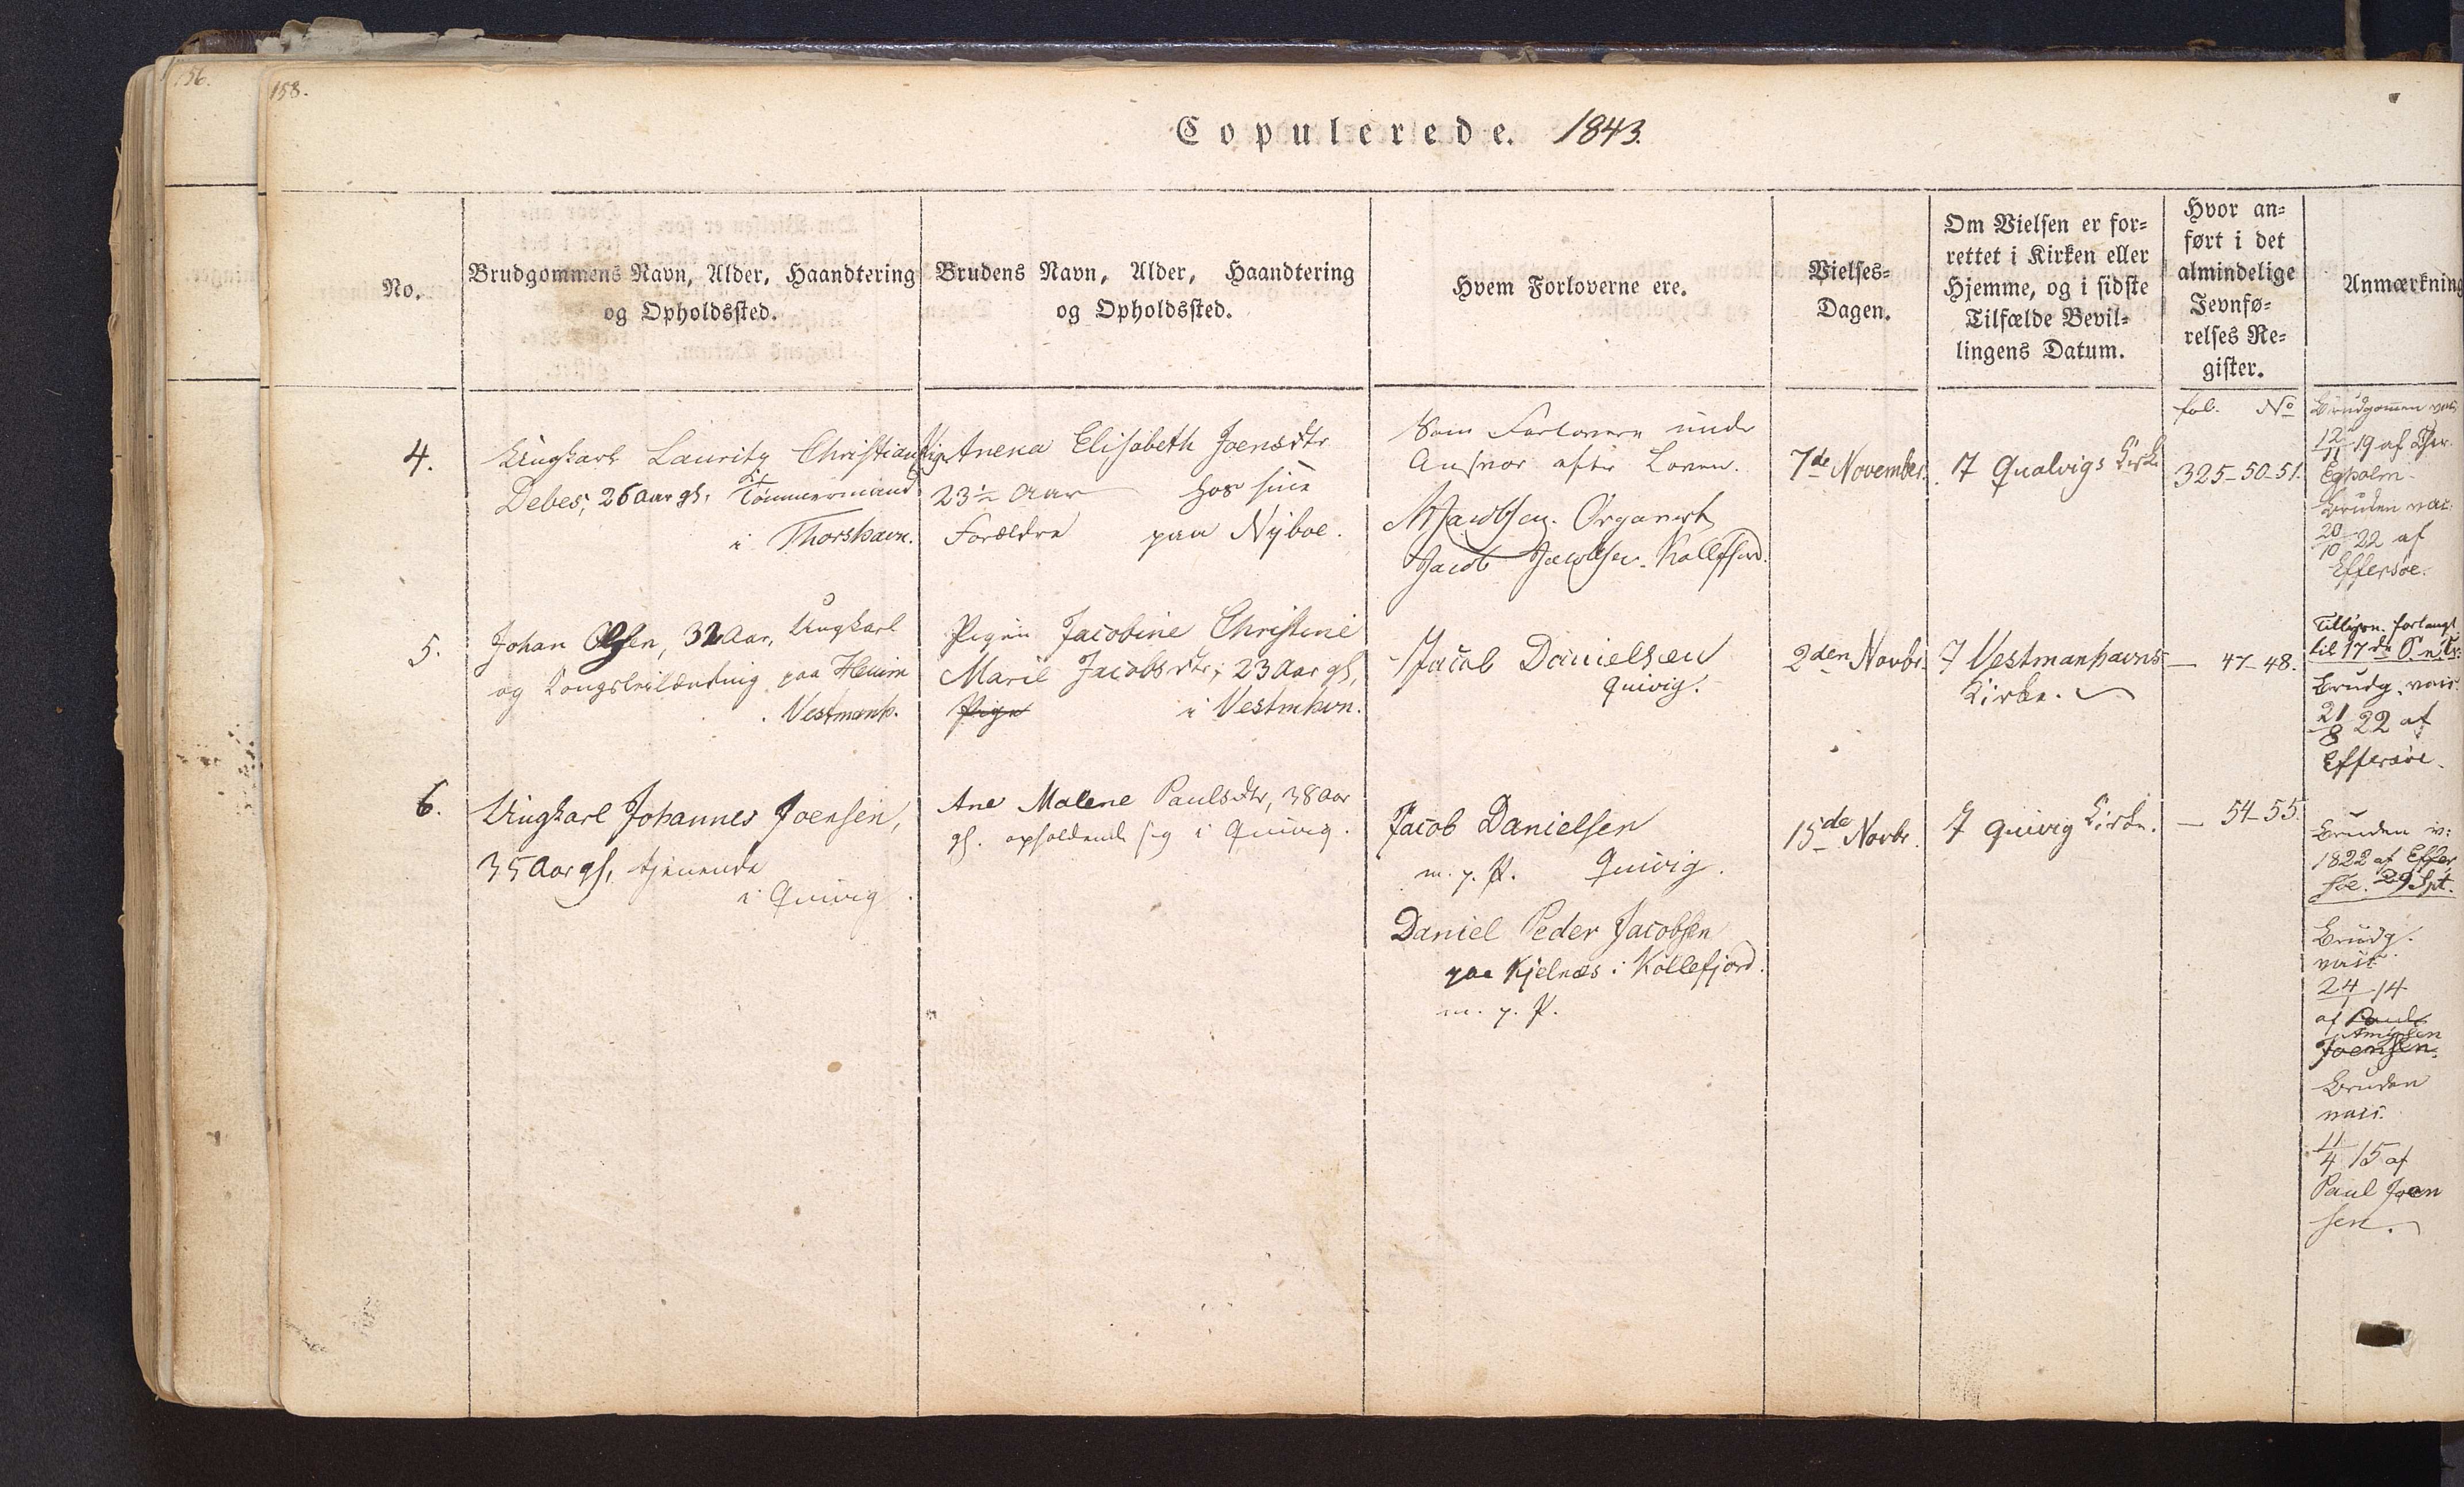 156.
158.
Copulerede. 1843.
No.
Brudgommens Navn, Alder, Haandtering
og Opholdssted.
Brudens Navn, Alder, Haandtering
og Opholdssted.
Hvem Forloverne ere.
Vielses-
Dagen.
Om Vielsen er for-
rettet i Kirken eller
Hjemme, og i sidste
Tilfælde Bevil-
lingens Datum.
Hvor an-
ført i det
almindelige
Jevnfø-
relses Re-
gister.
Anmærkning
fol. No
4.
Ungkarl Lauritz Christian
Debes, 26 Aar gl. Tømmermand
i Thorshavn.
Pige Anena Elisabeth Joensdtr
23½ Aar hos sine
Forældre paa Nyboe.
Som Forlovere under
Ansvar efter Loven.
Jacobsen. Organist
Jacob Jacobsen. Kollefjord.
7de November.
7 Qualvigs Kirke
325-50-51.
Brudgomen vac.
12/11 19 af
Egholm.
Bruden vac.
20/10 22 af
Effersøe.
5.
Johan Olsen, 32 Aar, Ungkarl
og paa Heium
Vestmanh.
Pigen Jacobine Christine
Marie Jacobsdtr, 23 Aar gl,
Pige i Vestmhvn.
Jacob Danielsen
Quivig.
2den Novbr.
7 Vestmanhavns
Kirke.
— 47-48.
Tillysn. forlangt
til 17de S. n. Tr.
Brudg. vacc.
21/8 22 af
Effersøe.
6.
Ungkarl Johannes Joensen,
35 Aar gl, tjenende
i Quivig.
Ane Malene Paulsdtr, 38 Aar
gl. opholdende sig i Quivig.
Jacob Danielsen
m. p. P. Quivig.
Daniel Peder Jacobsen
paa Kjelnæs i Kollefjord.
m. p. P.
15de Novbr.
7 Quivig Kirke.
— 54-55.
Bruden v:
1822 af Effer
søe. 29 Spt.
Brudg.
vacc.
24/1 14
af Paul
Joensen.
Bruden
vacc.
11/4 15 af
Paul Joen
sen.